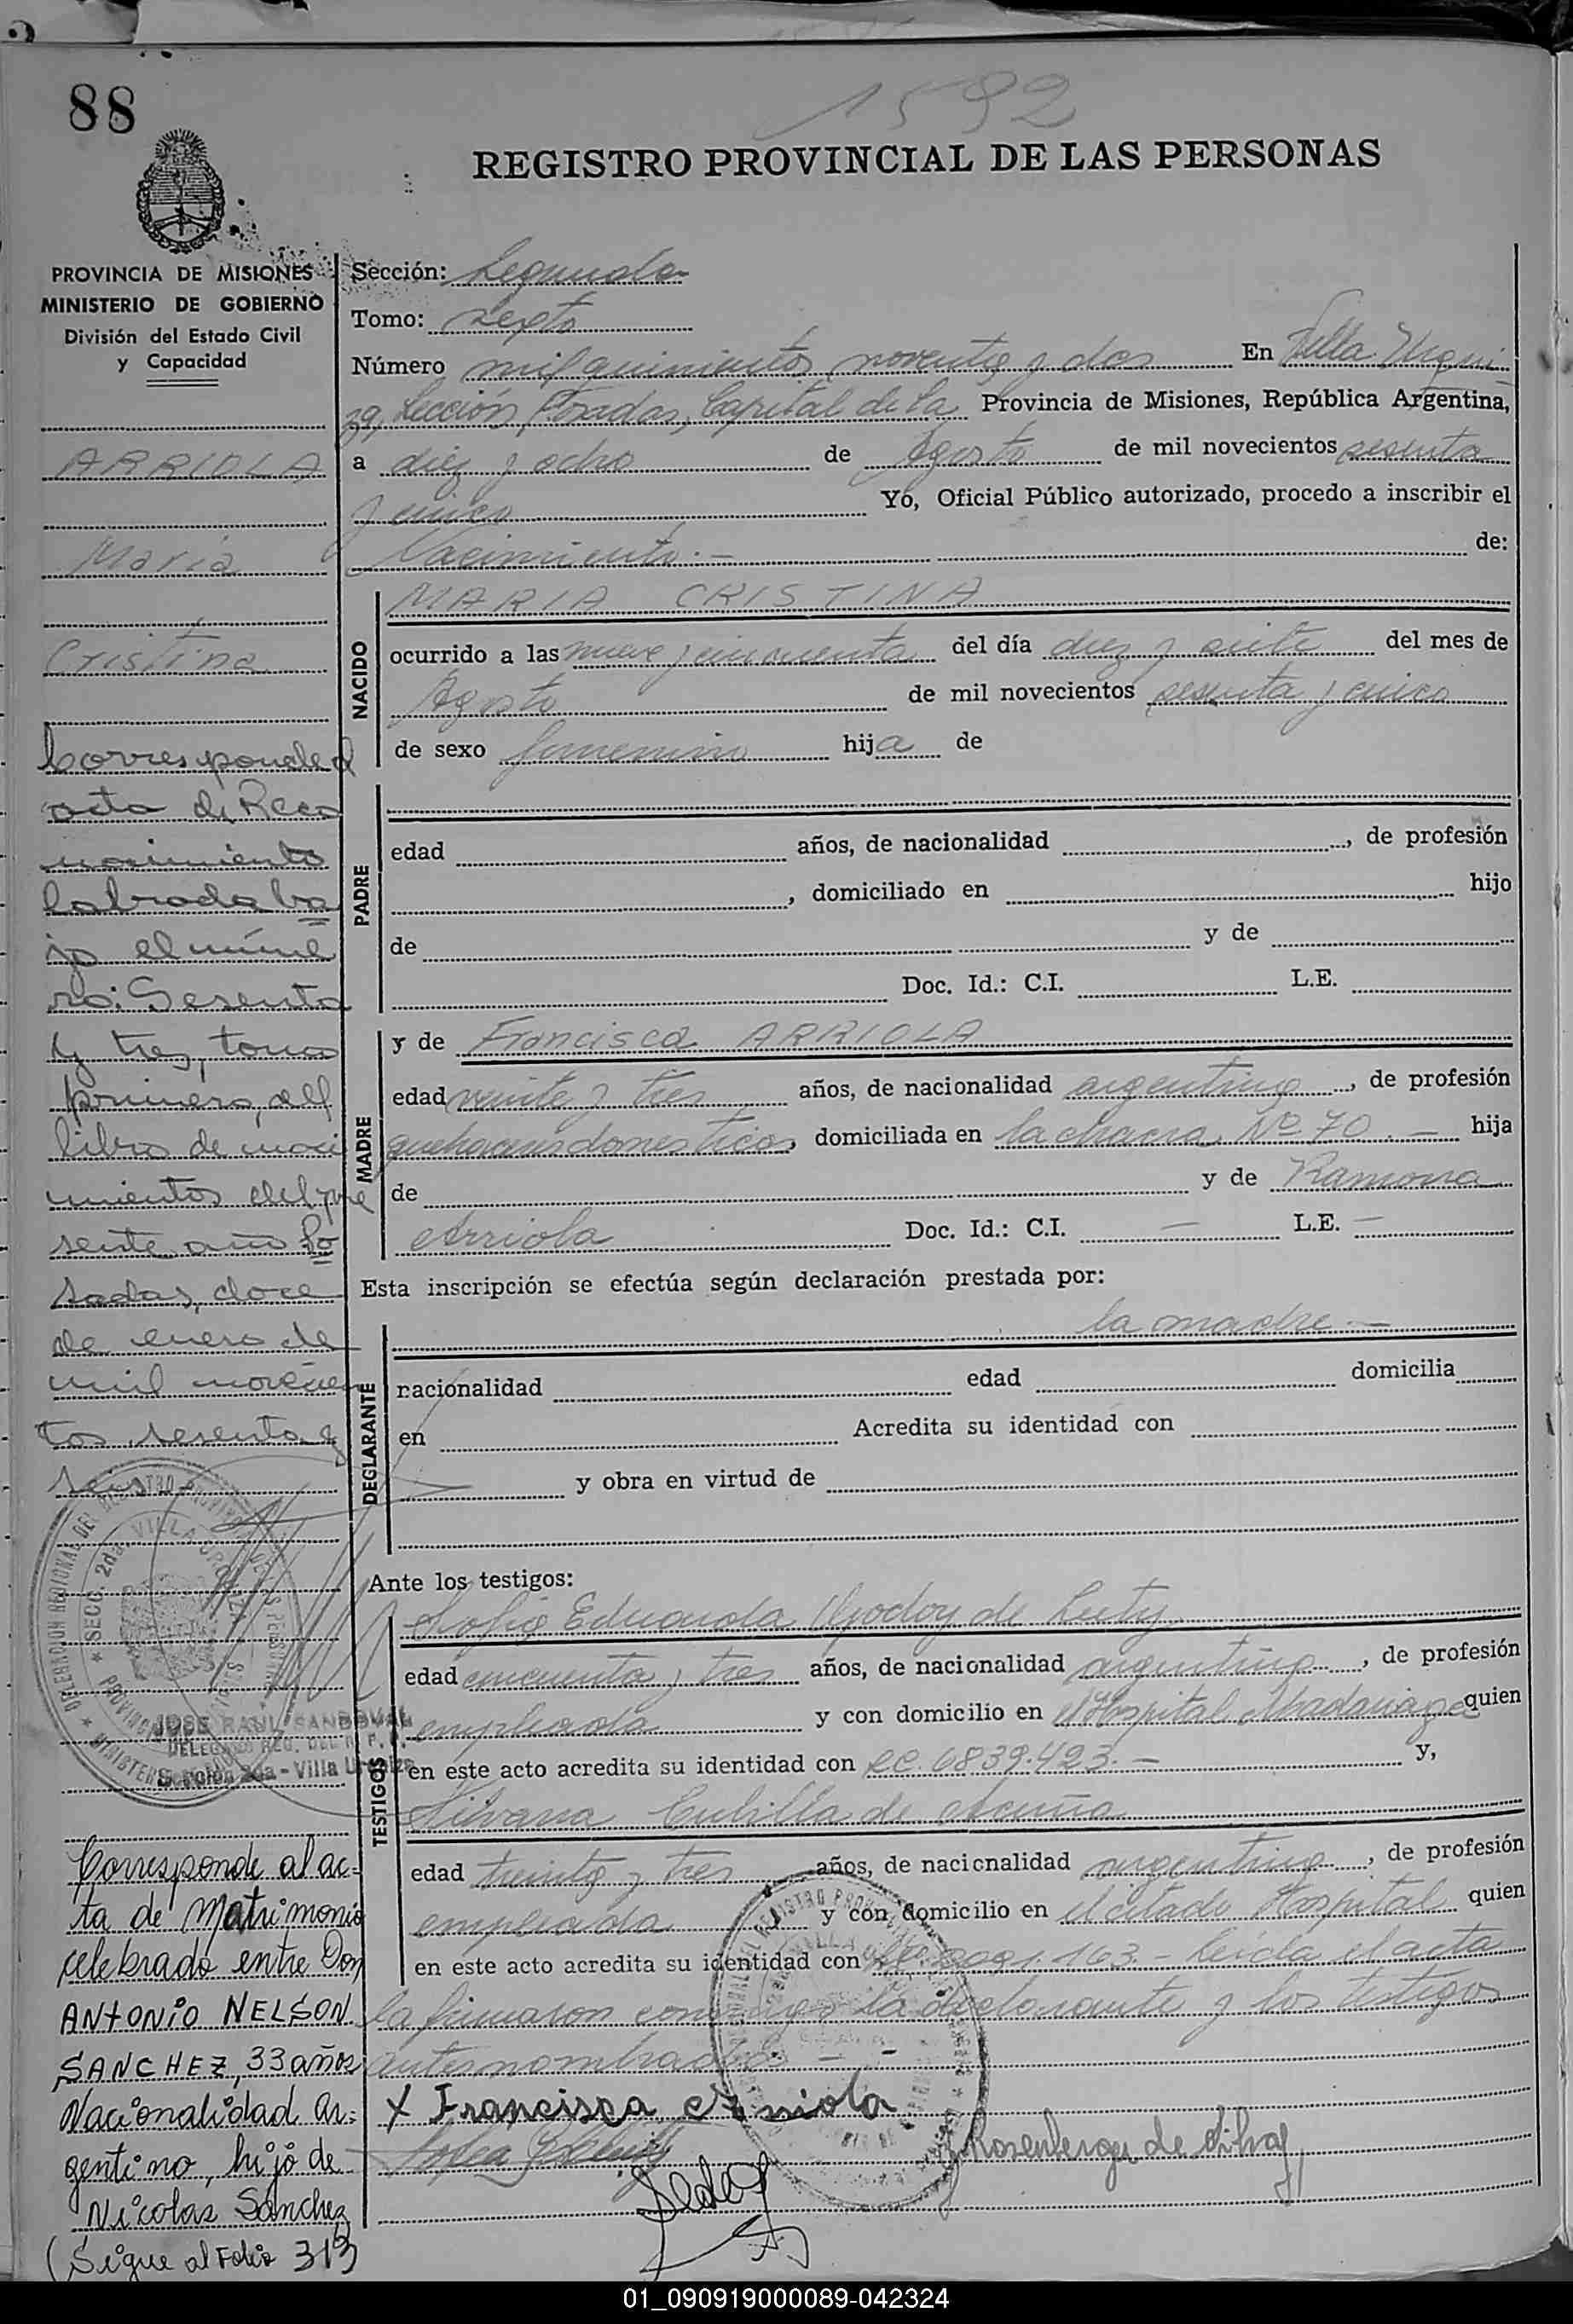 88
1592
REGISTRO PROVINCIAL DE LAS PERSONAS
PROVINCIA DE MISIONES
MINISTERIO DE GOBIERNO
División del Estado Civil
y Capacidad
ARRIOLA
Maria
Cristina
Corresponde al
acta de Reco
nocimiento
labrada ba
jo el núme
ro: Sesenta
y tres, tomo
primero, del
libro de naci
mientos del pre
sente año Po
sadas, doce
de enero de
mil novecien
tos sesenta y
seis
JOSE RAUL SANDOVAL
Sección 2da - Villa Urquiza
Corresponde al ac=
ta de Matrimonio
celebrado entre Don
ANTONIO NELSON
SANCHEZ, 33 años
Nacionalidad Ar=
gentino, hijo de
Nicolas Sanchez
(Sigue al Folio 313
Sección: Segunda
Tomo: Sexto
Número mil quinientos noventa y dos En Villa Urqui
za, Sección Posadas, Capital de la Provincia de Misiones, República Argentina,
a diez y ocho de Agosto de mil novecientos sesenta
y cinco Yo, Oficial Público autorizado, procedo a inscribir el
Nacimiento.— de:
NACIDO
MARIA CRISTINA
ocurrido a las nueve y cincuenta del día diez y siete del mes de
Agosto de mil novecientos sesenta y cinco
de sexo femenino hija de
PADRE
edad años, de nacionalidad , de profesión
, domiciliado en hijo
de y de
Doc. Id.: C.I. L.E.
MADRE
y de Francisca ARRIOLA
edad veinte y tres años, de nacionalidad argentina, de profesión
quehaceres domesticos, domiciliada en la chacra Nº 70.— hija
de y de Ramona
Arriola Doc. Id.: C.I. — L.E. —
Esta inscripción se efectúa según declaración prestada por:
DEGLARANTE
la madre.—
nacionalidad edad domicilia
en Acredita su identidad con
y obra en virtud de
Ante los testigos:
TESTIGOS
Sofia Eduarda Godoy de
edad cincuenta y tres años, de nacionalidad argentina, de profesión
empleada y con domicilio en el Hospital Madariaga quien
en este acto acredita su identidad con 6839.423.— y,
Silvana Cubilla de Acuña
edad treinta y tres años, de nacionalidad argentina, de profesión
empleada y con domicilio en el citado Hospital quien
en este acto acredita su identidad con .163.— Leída el acta
la firmaron conmigo la declarante y los testigos
antes nombrados — -
X Francisca Arriola
01_090919000089-042324